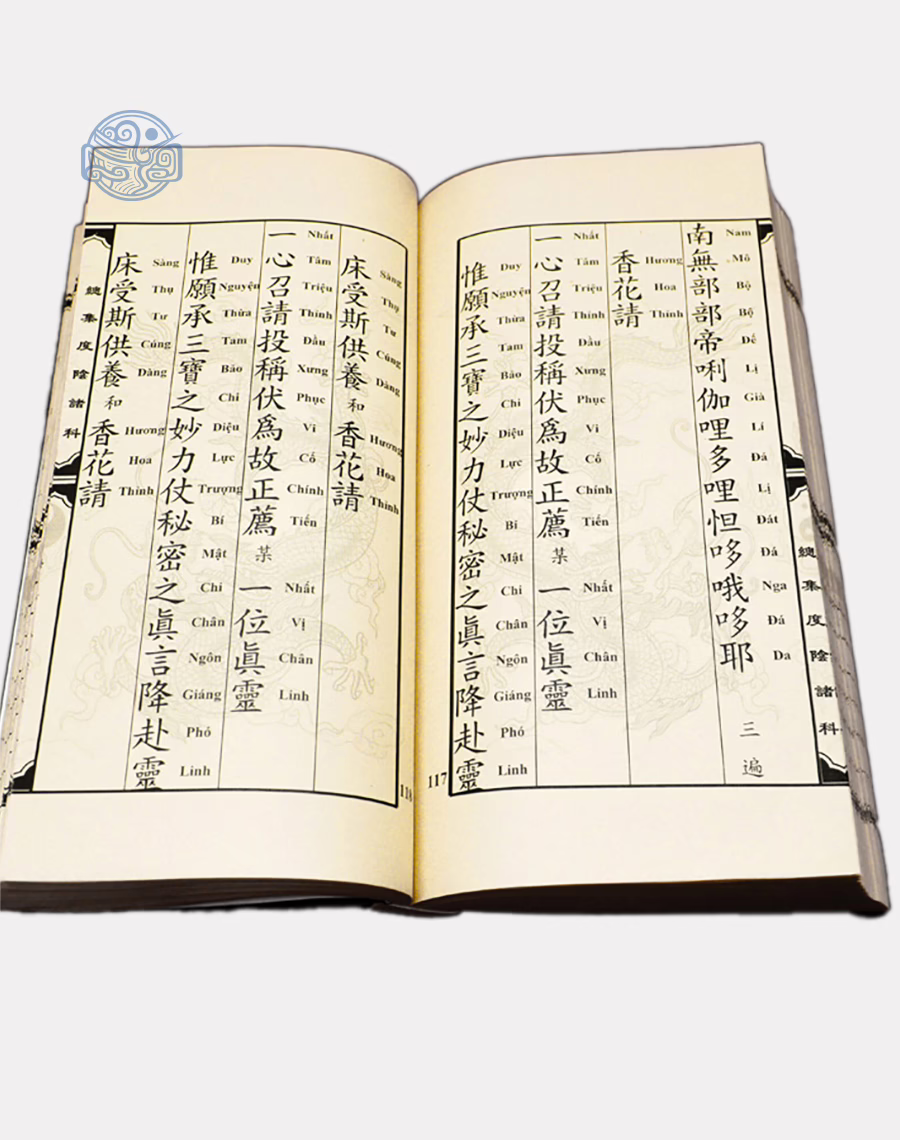 南無部部帝唎伽哩多哩怛哆哦哆耶 三遍
Nam Mô Bộ Bộ Đế Lị Già Lí Đá Lị Đát Đá Nga Đá Da
香花請
Hương Hoa Thỉnh
一心召請投稱伏爲故正薦某一位眞靈
Nhất Tâm Triệu Thỉnh Đầu Xưng Phục Vi Cố Chính Tiến Nhất Vị Chân Linh
惟願承三寶之妙力仗秘密之眞言降赴靈
Duy Nguyện Thừa Tam Bảo Chi Diệu Lực Trượng Bí Mật Chi Chân Ngôn Giáng Phó Linh
總集度陰諸科
117
床受斯供養和香花請
Sàng Thụ Tư Cúng Dàng Hương Hoa Thỉnh
一心召請投稱伏爲故正薦某一位眞靈
Nhất Tâm Triệu Thỉnh Đầu Xưng Phục Vi Cố Chính Tiến Nhất Vị Chân Linh
惟願承三寶之妙力仗秘密之眞言降赴靈
Duy Nguyện Thừa Tam Bảo Chi Diệu Lực Trượng Bí Mật Chi Chân Ngôn Giáng Phó Linh
床受斯供養和香花請
Sàng Thụ Tư Cúng Dàng Hương Hoa Thỉnh
總集度陰諸科
118